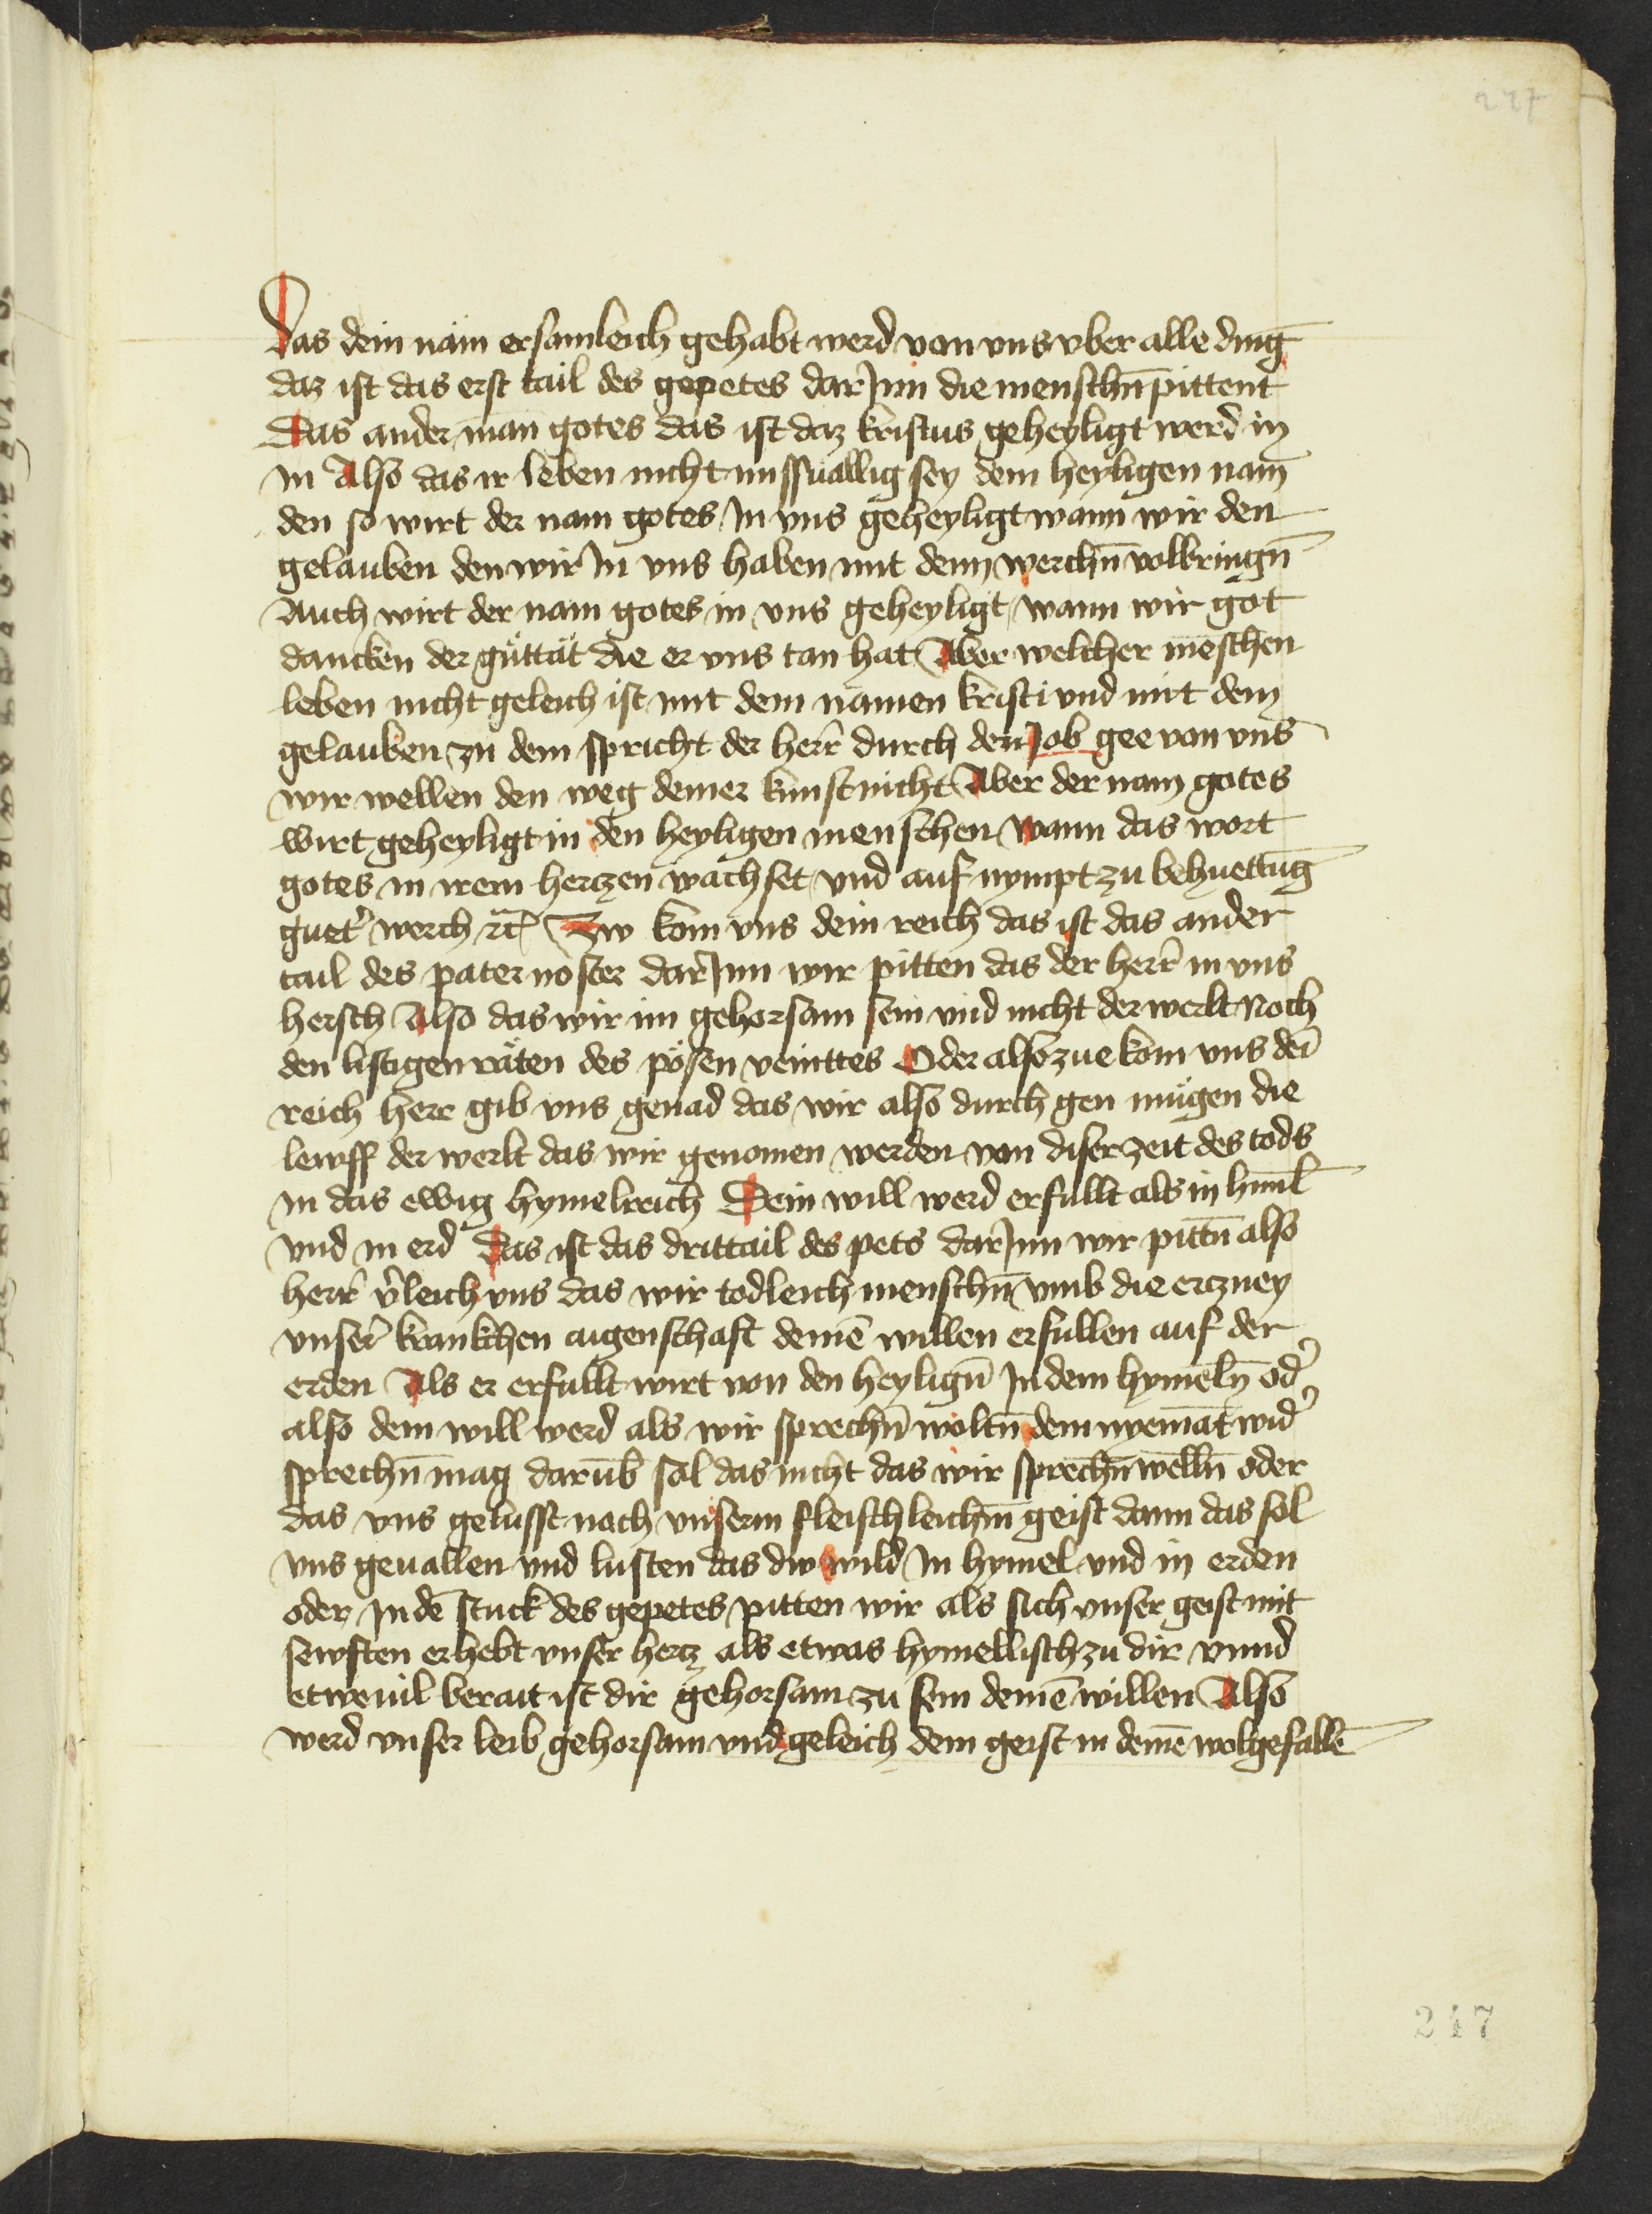 227
Das dein nam ersamleich gehabt werd von vns vber alle ding
daz ist das erst tail des gepetes dar Jnn die menschn̄ pittent
Das ander man gotes das ist daz kristus geheyligt werd in
in Also das ir leben nicht missuallig sey dem heyligen nam
den so wirt der nam gotes Jn vns geheyligt wann wir den
gelauben den wir Jn vns haben mit denn werchn̄ volbringn̄
Auch wirt der nam gotes in vns geheyligt wann wir got
dancken der guttät die er vns tan hat Aber welcher menschen
leben nicht geleich ist mit dem namen kristi vnd mit dem
gelauben zu dem spricht der herr durch den Job gee von vns
wir wellen den weg deiner kunst nicht Aber der nam gotes
wirt geheyligt in den heyligen menschen wann das wort
gotes in irem hertzen wachset vnd auf nympt zu behuettūg
guet' werch ꝛc Zw kom vns dein reich das ist das ander
tail des pater noster dar Jnn wir pitten das der herr in vns
hersch Also das wir im gehorsam sein vnd nicht der werlt Noch
den listigen räten des pösen veinttes Oder also zue kom vns dei
reich herr gib vns genad das wir also durch gen mugen die
lewff der werlt das wir genomen werden von diser zeit des tods
in das ewig hymelreich Dein will werd erfullt als in himl
vnd in erd Das ist das drittail des pets dar Jnn wir pittn̄ also
herr v'leich vns das wir todleich menschn̄ vmb die ertzney
vnser' kranckhen aigenschaft deinē willen erfullen auf der
erden Als er erfullt wirt von den heylign̄ Jn dem hymeln̄ od'
also dein will werd als wir sprechn̄ woltn̄ dem nyemāt wid'
sprechn̄ mag darūb sol das nicht das wir sprechn̄ welln̄ oder
das vns gelusst nach vnserm fleischleichm̄ geist dann das sol
vns geuallen vnd lusten das dw wild Jn hymel vnd in erden
oder Jn dē stuck des gepetes pitten wir als sich vnser geist mit
sewften erhebt vnser hertz als etwas hymellisch zu dir vnnd
etweuil berait ist dir gehorsam zu sein deinē willen Also
werd vnser leib gehorsam vnd geleich dem geist in deinē wolgefallē
247